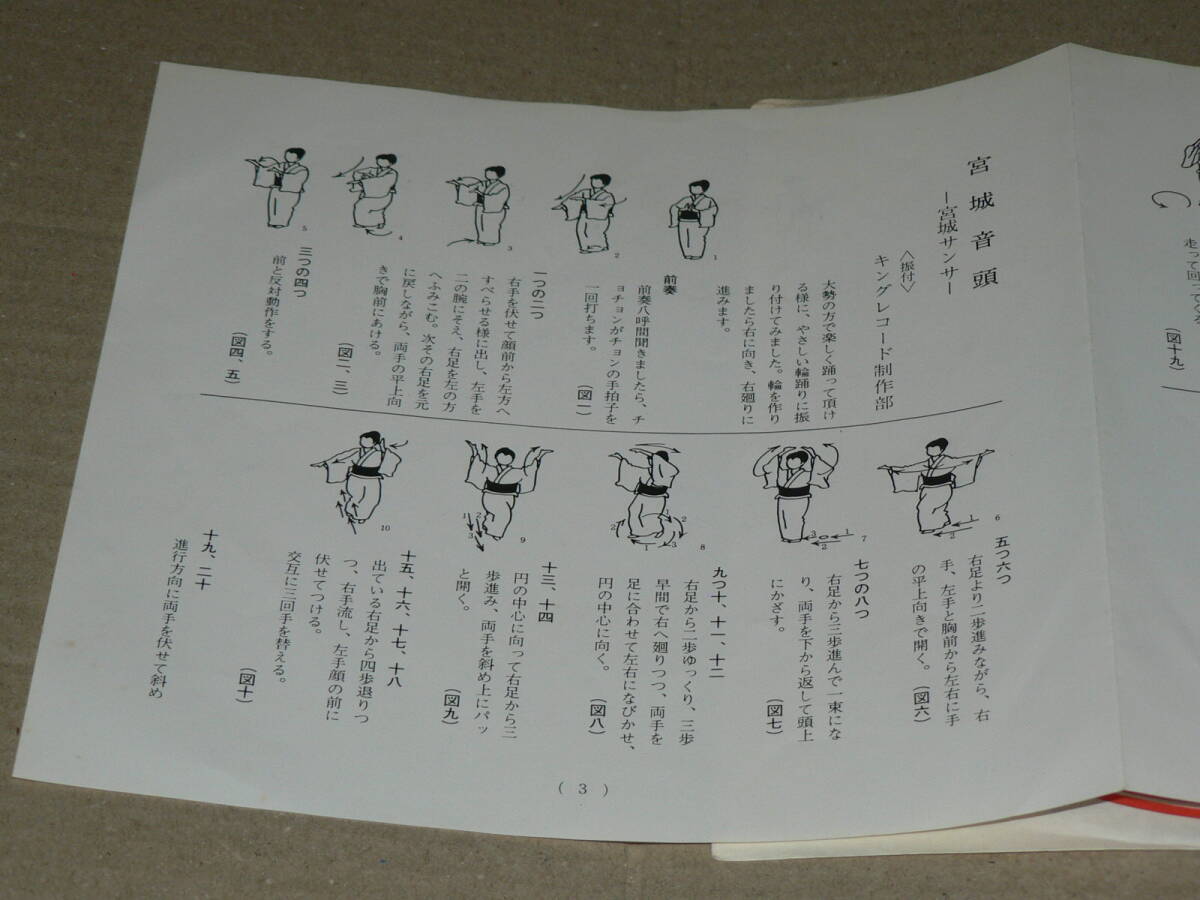 宮城音頭
―宮城サンサ―
〈振付〉
キングレコード制作部
大勢の方で楽しく踊って頂け
る様に、やさしい輪踊りに振
り付けてみました。輪を作り
ましたら右に向き、右廻りに
進みます。
前奏
前奏八呼間聞きましたら、チ
ョチョンがチョンの手拍子を
一回打ちます。
(図一)
一つの二つ
右手を伏せて顔前から左方へ
すべらせる様に出し、左手を
二の腕にそえ、右足を左の方
へふみこむ。次その右足を元
に戻しながら、両手の平上向
きで胸前にあける。
(図二、三)
三つの四つ
前と反対動作をする。
(図四、五)
1
2
3
4
5
五つ六つ
右足より二歩進みながら、右
手、左手と胸前から左右に手
の平上向きで開く。
(図六)
七つの八つ
右足から三歩進んで一束にな
り、両手を下から返して頭上
にかざす。
(図七)
九つ十、十一、十二
右足から二歩ゆっくり、三歩
早間で右へ廻りつつ、両手を
足に合わせて左右になびかせ、
円の中心に向く。
(図八)
十三、十四
円の中心に向って右足から三
歩進み、両手を斜め上にパッ
と開く。
(図九)
十五、十六、十七、十八
出ている右足から四歩退りつ
つ、右手流し、左手顔の前に
伏せてつける。
交互に三回手を替える。
(図十)
十九、二十
進行方向に両手を伏せて斜め
6
7
8
9
10
( 3 )
走って回ってくる
(図十九)